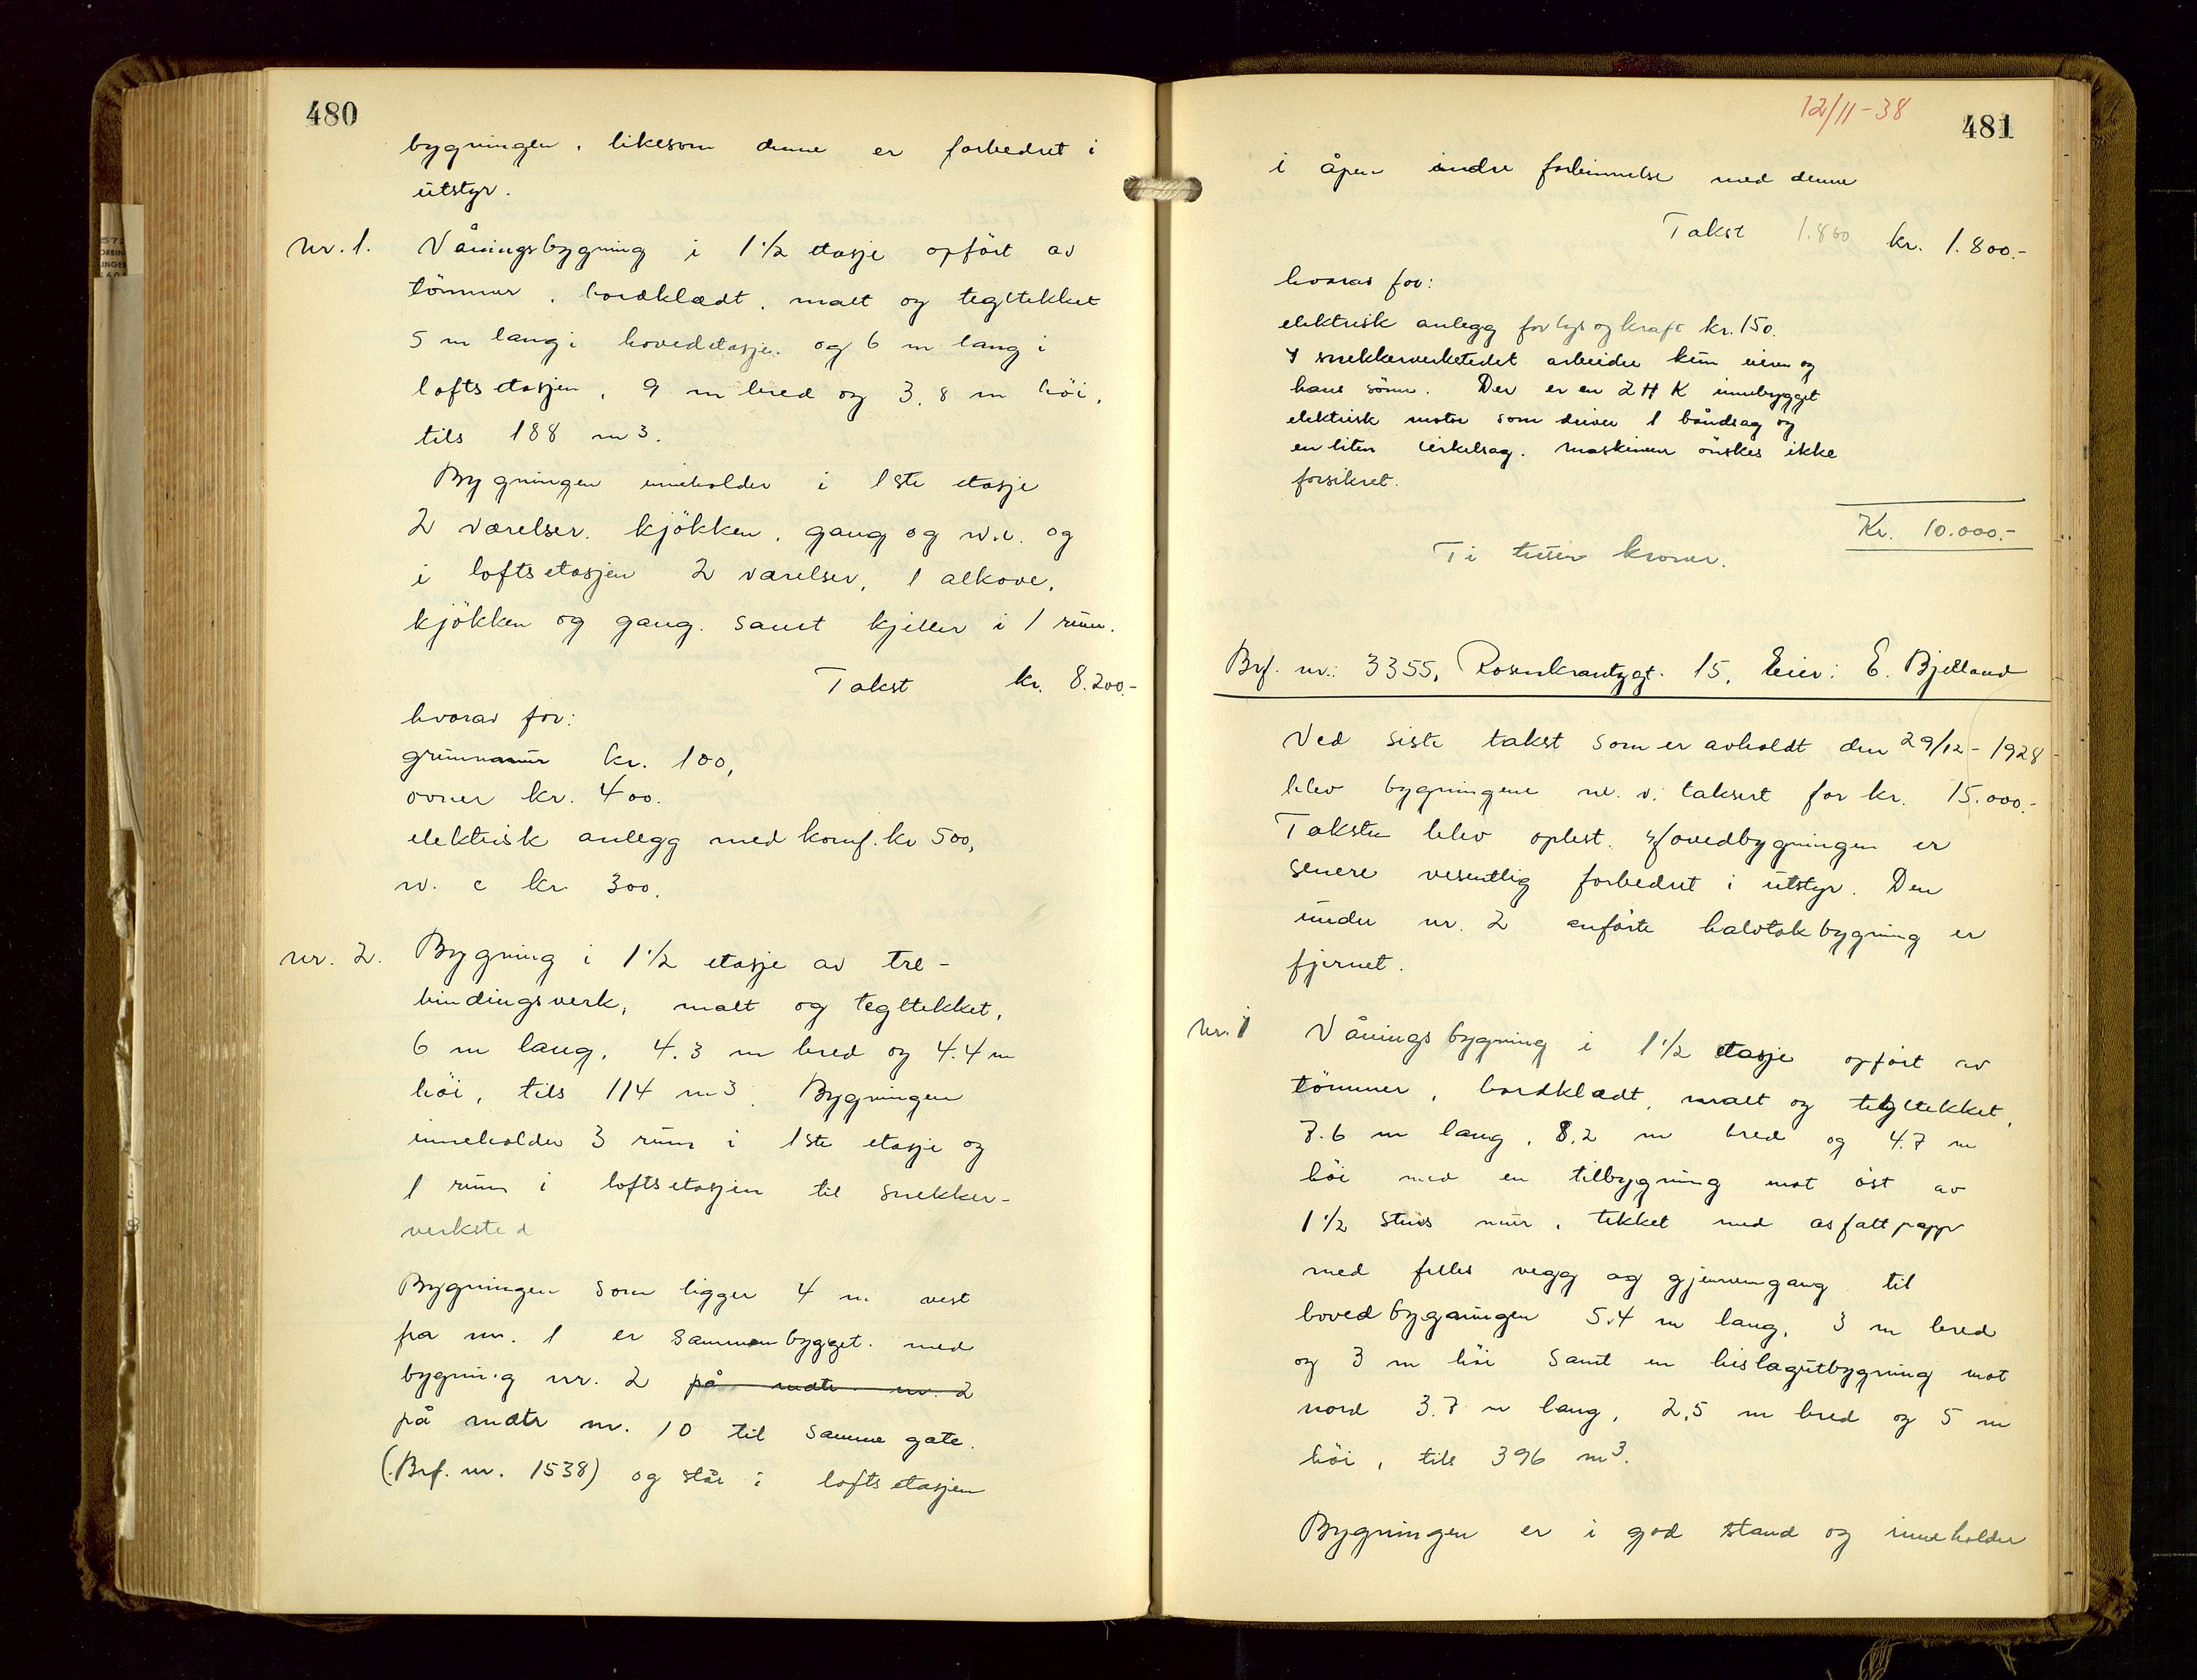 480
bygningen, likesom denne er forbedret i
utstyr.
Nr. 1. Våningsbygning i 1 1/2 etasje opført av
tömmer, bordklædt, malt og tegltekket
5 m lang i hovedetasje og 6 m lang i
loftsetasjen, 9 m bred og 3,8 m höi,
tils 188 m3.
Bygningen inneholder i 1ste etasje
2 værelser, kjökken, gang og w.c. og
i loftsetasjen 2 værelser, 1 alkove,
kjökken og gang, samt kjeller i 1 rum.
Takst kr. 8.200.-
hvorav for:
grunnmur kr. 100,
ovner kr. 400.
elektrisk anlegg med komf. kr 500,
w. c kr 300.
nr. 2. Bygning i 1 1/2 etasje av tre-
bindingsverk, malt og tegltekket,
6 m lang, 4.3 m bred og 4.4 m
höi, tils 114 m3. Bygningen
inneholder 3 rum i 1ste etasje og
1 rum i loftsetasjen til snekker-
verksted
Bygningen som ligger 4 m vest
fra nr. 1 er sammenbygget med
bygning nr. 2 på matr. nr. 2
på matr nr. 10 til samme gate.
(Brf. nr. 1538) og står i loftsetasjen
12/11-38
481
i åpen indre forbinnelse med denne
Takst 1.800 kr. 1.800.-
hvorav for:
elektrisk anlegg for lys og kraft kr. 150.
I snekkerverkstedet arbeider kun eieren og
hans sönn. Der er en 2 H K innebygget
elektrisk motor som driver 1 båndsag og
en liten cirkelsag. Maskinene önskes ikke
forsikret.
Kr. 10.000.-
Ti tusen kroner.
Brf. nr.: 3355, Rosenkrantzgt. 15, Eier: E. Bjelland
Ved siste takst som er avholdt den 29/12-1928
blev bygningene nr. v. taksert for kr. 15.000.-
Taksten blev oplest. Hovedbygningen er
senere vesentlig forbedret i utstyr. Den
under nr. 2 anförte halvtakbygning er
fjernet.
Nr. 1 Våningsbygning i 1 1/2 etasje opfört av
tömmer, bordklædt, malt og tegltekket,
7.6 m lang, 8,2 m bred og 4.7 m
höi med en tilbygning mot öst av
1 1/2 stens mur, tekket med asfaltpapp
med felles vegg og gjennemgang til
hovedbygningen 5.4 m lang, 3 m bred
og 3 m höi samt en bislagutbygning mot
nord 3.7 m lang, 2,5 m bred og 5 m
höi, tils 396 m3.
Bygningen er i god stand og inneholder